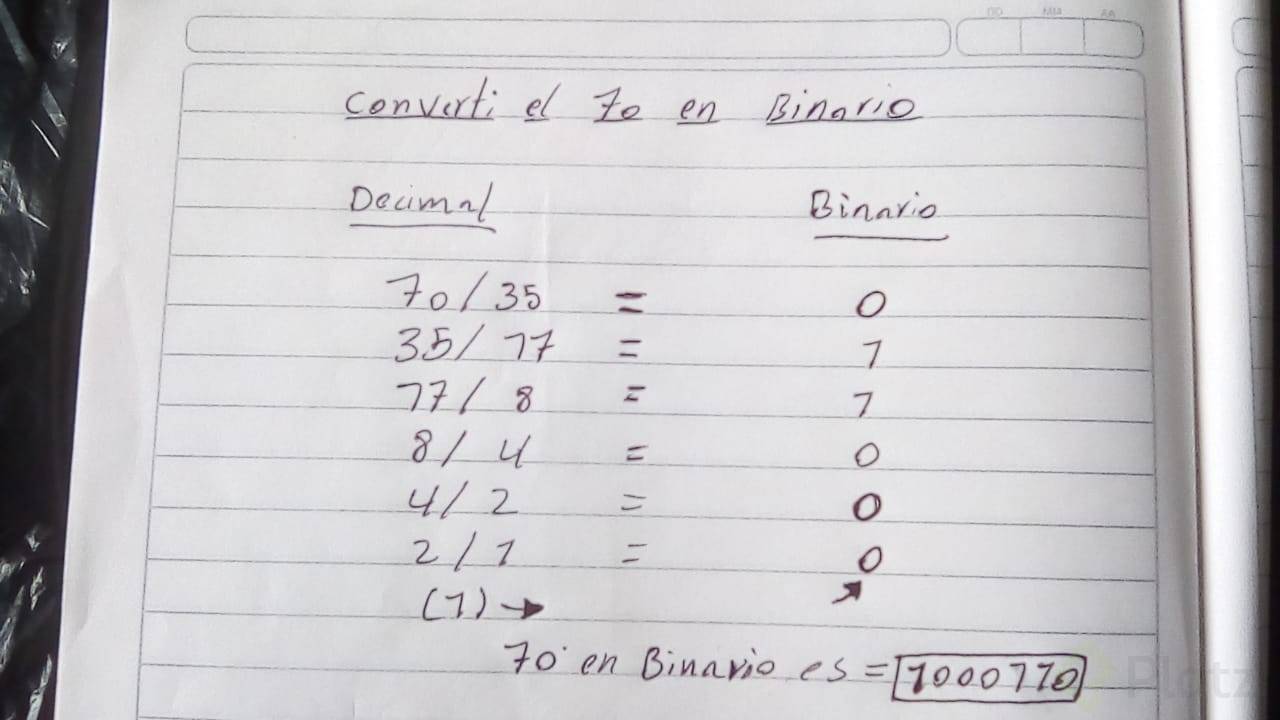 DD MM AA
Converti el 70 en Binario
Decimal Binario
70 / 35 = 0
35 / 17 = 1
17 / 8 = 1
8 / 4 = 0
4 / 2 = 0
2 / 1 = 0
(1) →
70 en Binario es = 1000110
Platzi